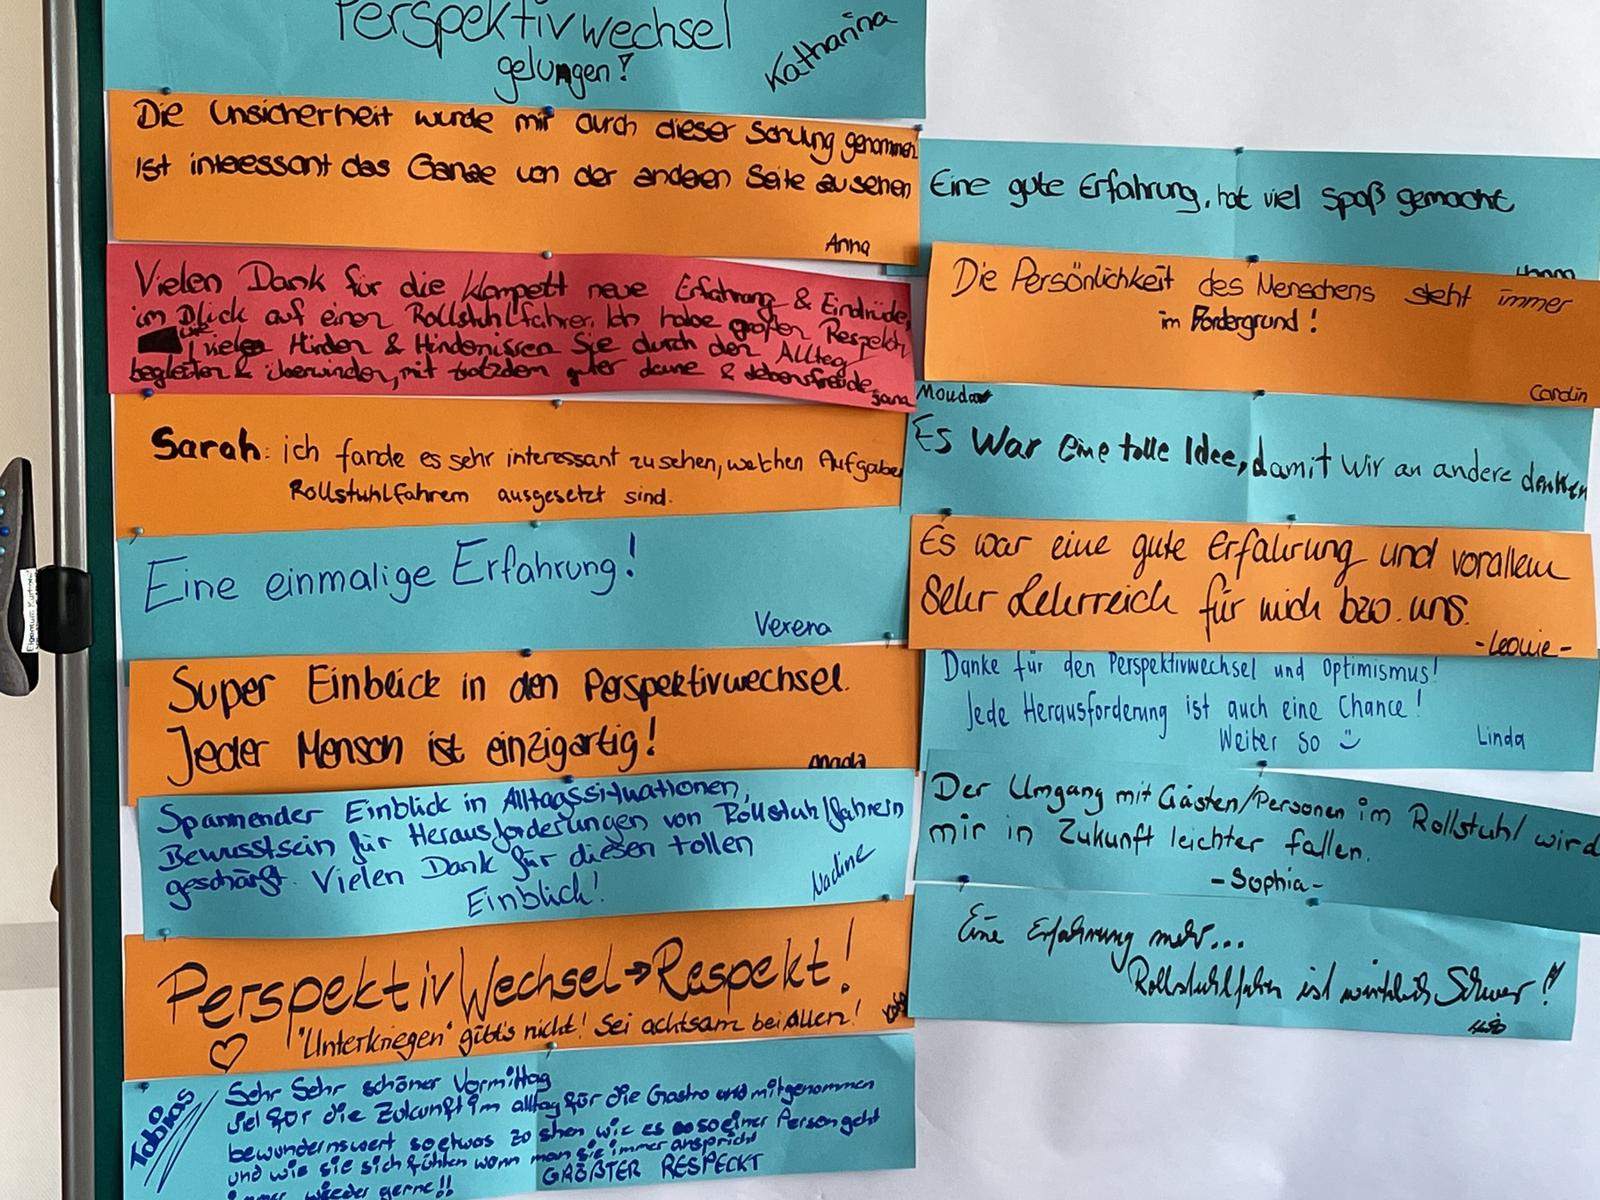 Perspektivwechsel
gelungen!
Katharina
Die Unsicherheit wurde mir durch dieser Schulung genommen.
Ist inteessant das Ganze von der anderen Seite zu sehen
Anna
Vielen Dank für die klompett neue Erfahrung & Eindrücke,
im Blick auf einen Rollstuhlfahrer. Ich habe großen Respekt,
wie viele Hürden & Hindernissen Sie durch den Alltag
begleiten & überwinden, mit trotzdem guter Laune & Lebensfreude.
Jana
Sarah: ich fande es sehr interessant zu sehen, welchen Aufgaben
Rollstuhlfahrern ausgesetzt sind.
Eine einmalige Erfahrung!
Verena
Super Einblick in den Perspektivwechsel.
Jeder Mensch ist einzigartig!
Spannender Einblick in Alltagssituationen,
Bewusstsein für Herausforderungen von Rollstuhlfahrern
geschärft. Vielen Dank für diesen tollen
Einblick!
Nadine
PerspektivWechsel → Respekt!
"Unterkriegen" gibt's nicht! Sei achtsam bei Allen!
Tobias
Sehr Sehr schöner Vormittag
viel für die Zukunft im alltag für die Gastro und mitgenommen
bewundernswert soetwas zo sehen wie es so einer Person geht
und wie sie sich fühlen wenn man sie immer anspricht
GRÖßTER RESPECKT
immer wieder gerne!!
Eine gute Erfahrung, hat viel Spaß gemacht
Die Persönlichkeit des Menschens steht immer
im Vordergrund!
Carolin
Es War eine tolle Idee, damit wir an andere denken
Es war eine gute Erfahrung und vorallem
Sehr Lehrreich für mich bzw. uns.
-Leonie-
Danke für den Perspektivwechsel und Optimismus!
Jede Herausforderung ist auch eine Chance!
Weiter so
Linda
Der Umgang mit Gästen/Personen im Rollstuhl wird
mir in Zukunft leichter fallen.
-Sophia-
Eine Erfahrung mehr...
Rollstuhlfahren ist wirklich Schwer!!